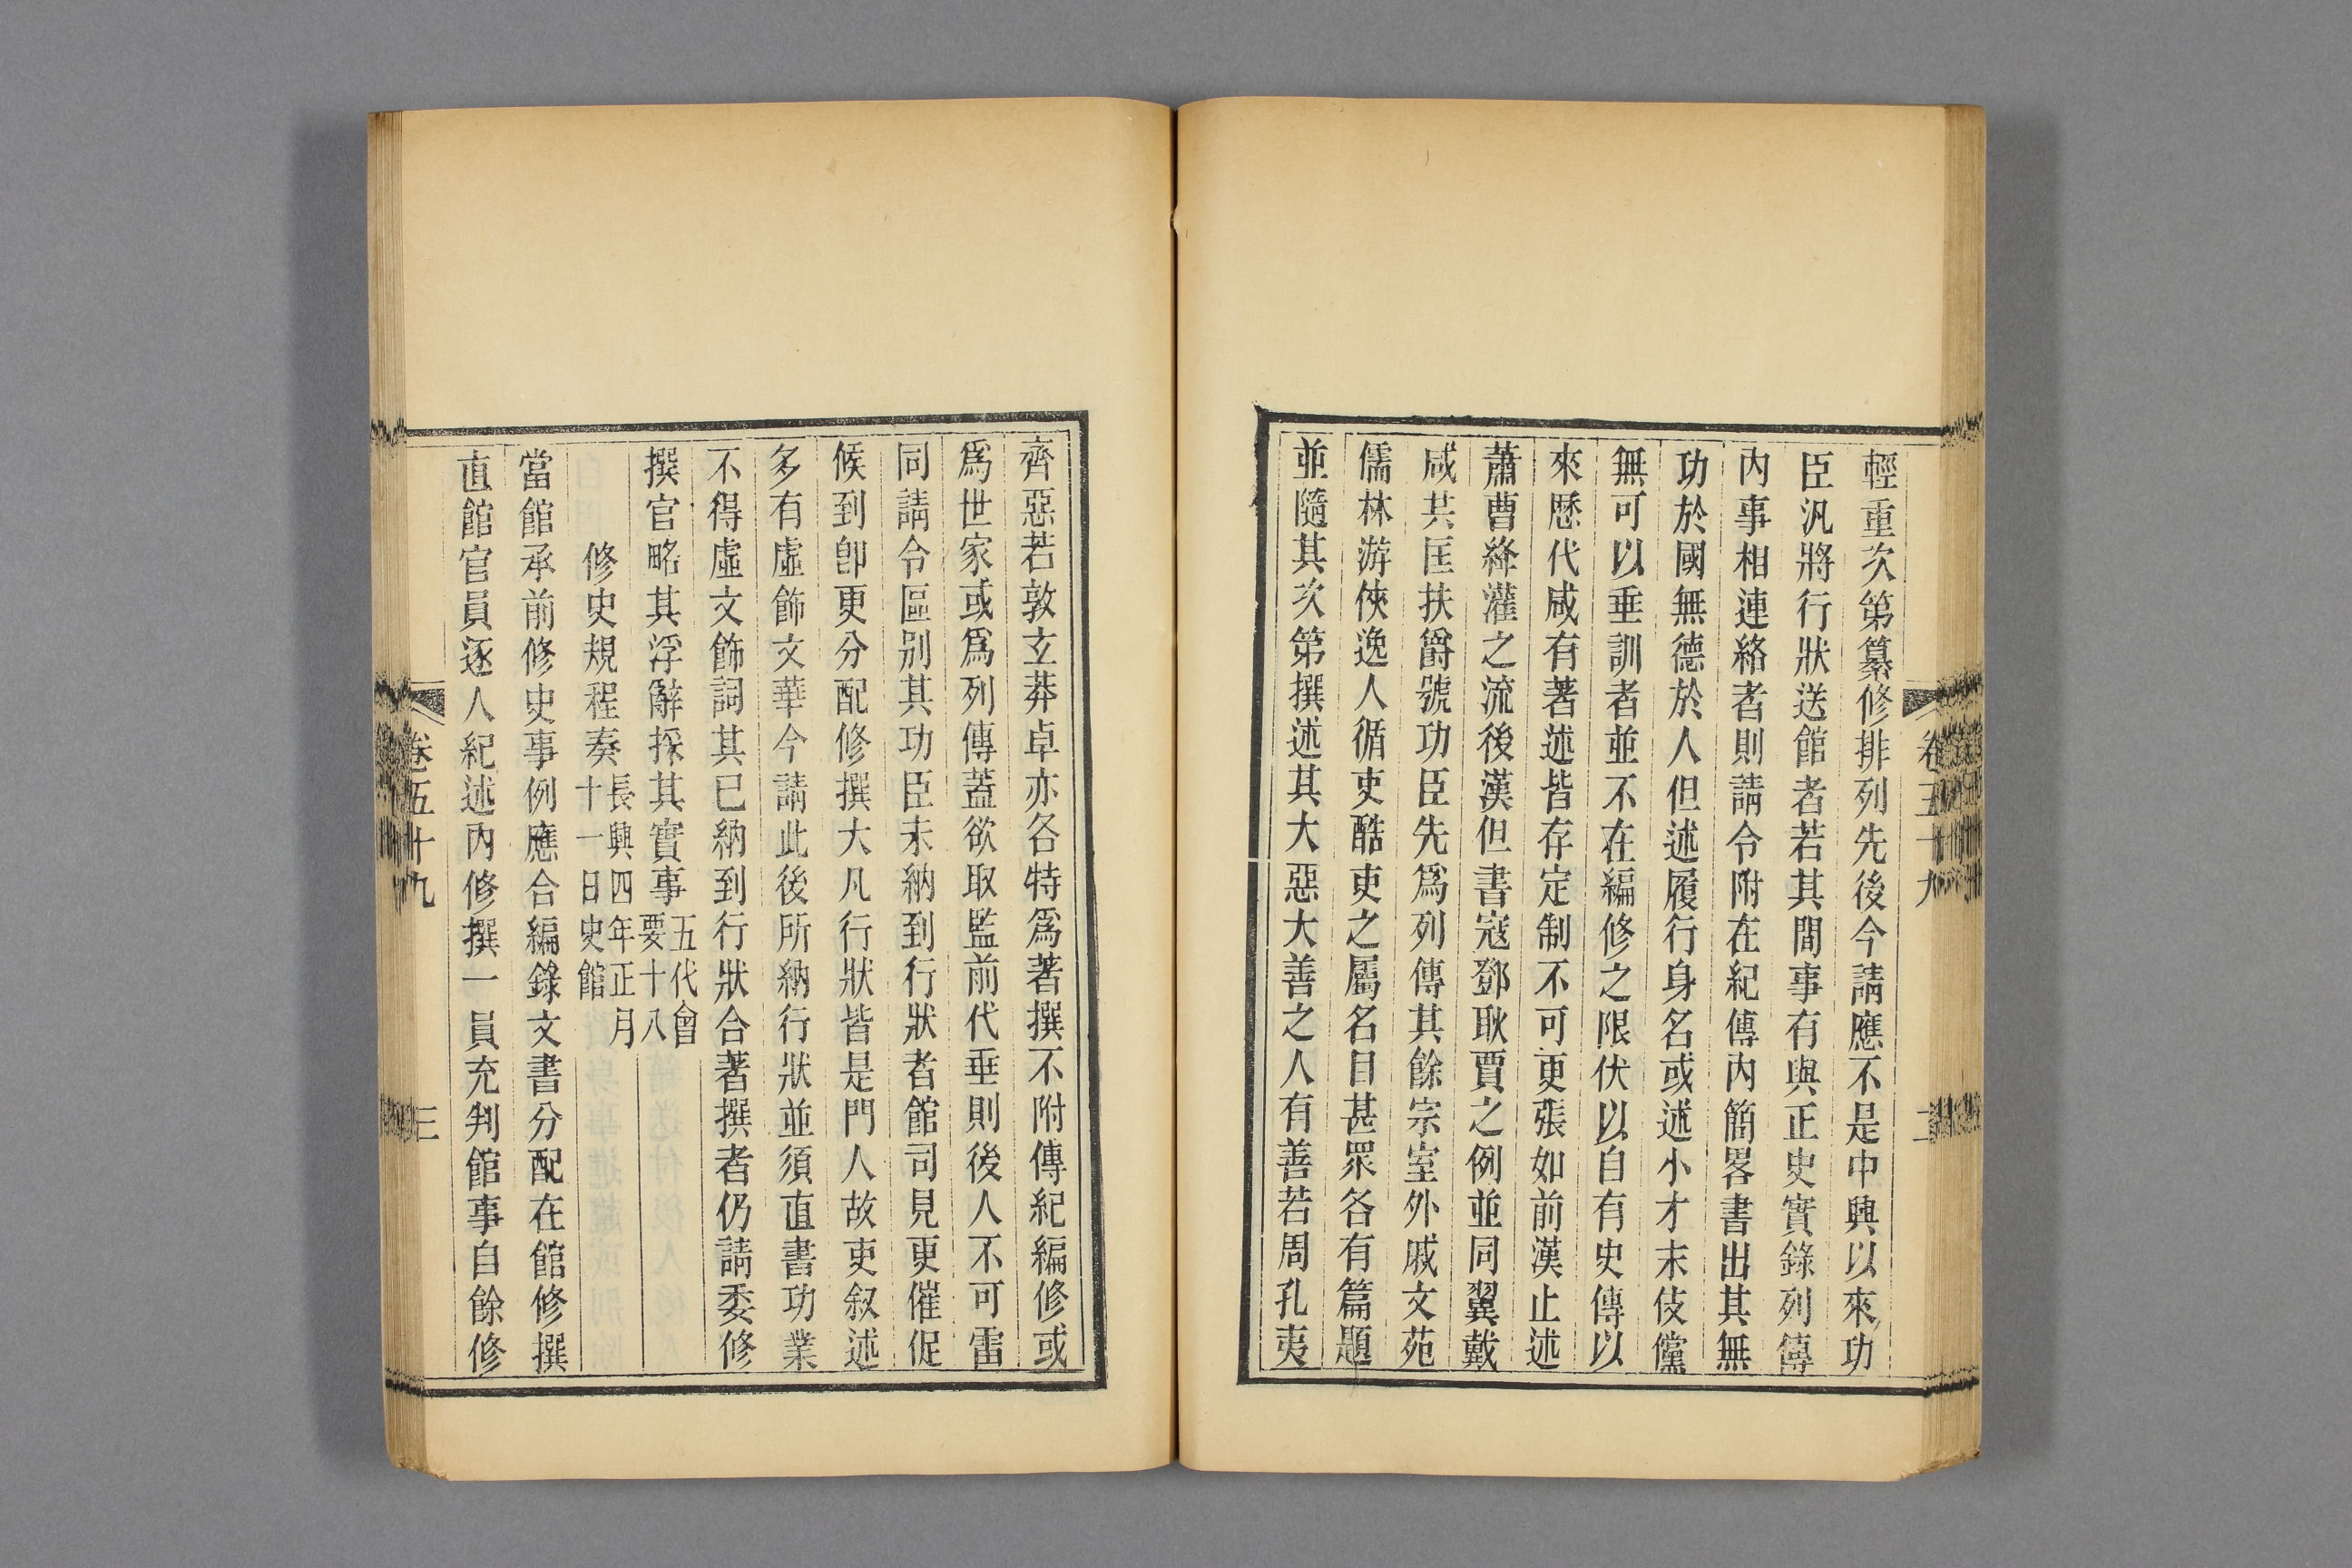 輕重次第纂修排列先後今請應不是中興以來功
臣汎將行狀送館者若其間事有與正史實錄列傳
內事相連絡者則請令附在紀傳內簡畧書出其無
功於國無德於人但述履行身名或述小才末伎儻
無可以垂訓者並不在編修之限伏以自有史傳以
來歷代咸有著述皆存定制不可更張如前漢止述
蕭曹絳灌之流後漢但書寇鄧耿賈之例並同翼戴
咸共匡扶爵號功臣先爲列傳其餘宗室外戚文苑
儒林游俠逸人循吏酷吏之屬名目甚眾各有篇題
並隨其次第撰述其大惡大善之人有善若周孔夷
卷五十九
二
齊惡若敦玄莽卓亦各特爲著撰不附傳紀編修或
爲世家或爲列傳蓋欲取監前代垂則後人不可雷
同請令區別其功臣未納到行狀者館司見更催促
候到卽更分配修撰大凡行狀皆是門人故吏叙述
多有虛飾文華今請此後所納行狀並須直書功業
不得虛文飾詞其已納到行狀合著撰者仍請委修
撰官略其浮辭採其實事五代會要十八
修史規程奏長興四年正月十一日史館
當館承前修史事例應合編錄文書分配在館修撰
直館官員逐人紀述內修撰一員充判館事自餘修
卷五十九
三